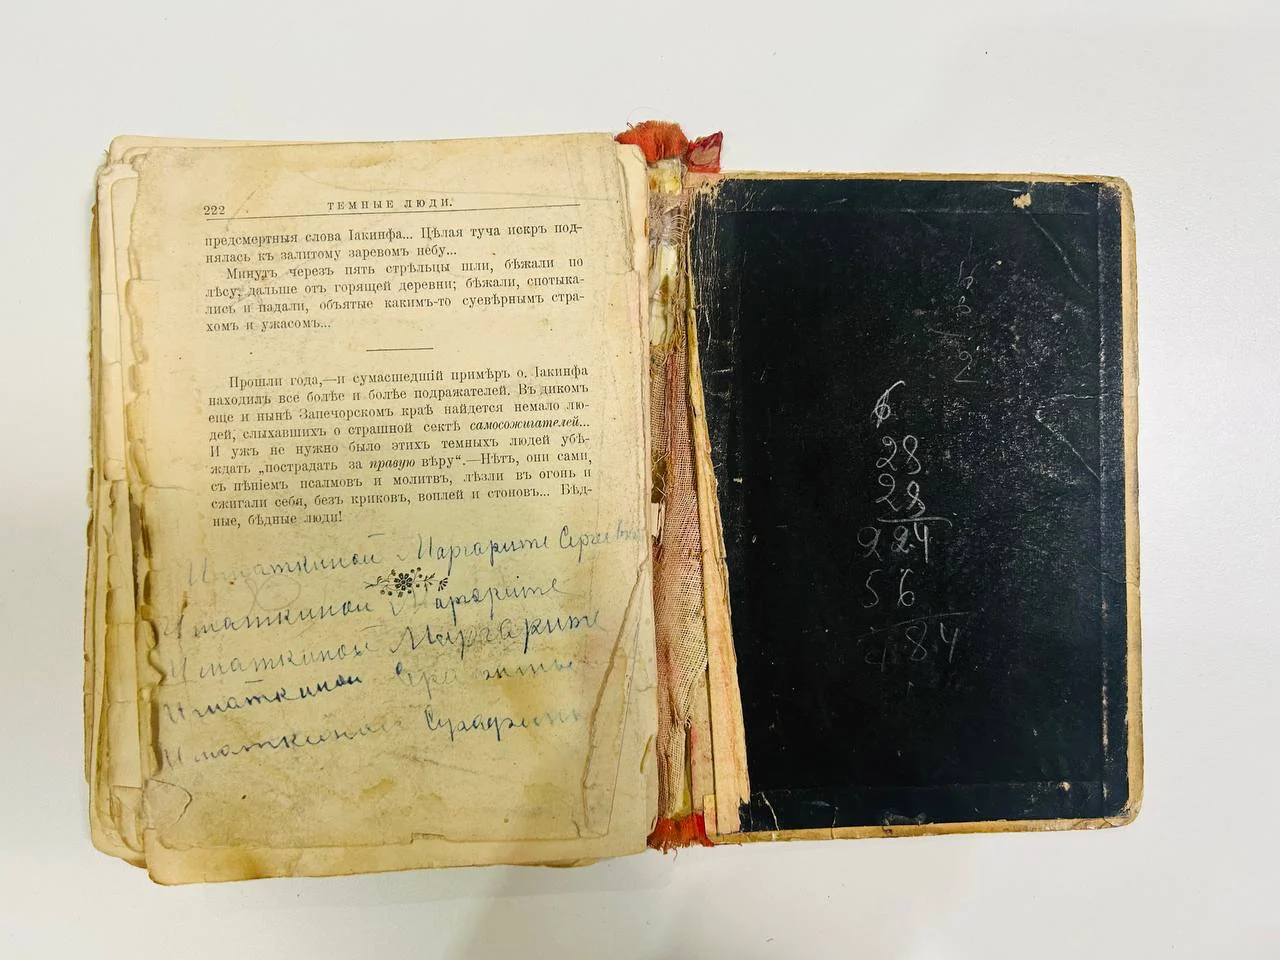 222 ТЕМНЫЕ ЛЮДИ.
предсмертныя слова Іакинфа... Цѣлая туча искръ под-
нялась къ залитому заревомъ небу...
Минутъ черезъ пять стрѣльцы шли, бѣжали по
лѣсу, дальше отъ горящей деревни; бѣжали, спотыка-
лись и падали, объятые какимъ-то суевѣрнымъ стра-
хомъ и ужасомъ...
Прошли года,—и сумасшедшій примѣръ о. Іакинфа
находилъ все болѣе и болѣе подражателей. Въ дикомъ
еще и нынѣ Запечорскомъ краѣ найдется немало лю-
дей, слыхавшихъ о страшной сектѣ самосожигателей...
И ужъ не нужно было этихъ темныхъ людей убѣ-
ждать „пострадать за правую вѣру“.—Нѣтъ, они сами,
съ пѣніемъ псалмовъ и молитвъ, лѣзли въ огонь и
сжигали себя, безъ криковъ, воплей и стоновъ... Бѣд-
ные, бѣдные люди!
Игнаткиной Маргарите
Игнаткиной Маргарите
Игнаткиной Маргарите
Игнаткиной
Игнаткиной
2
6
28
28
224
56
84